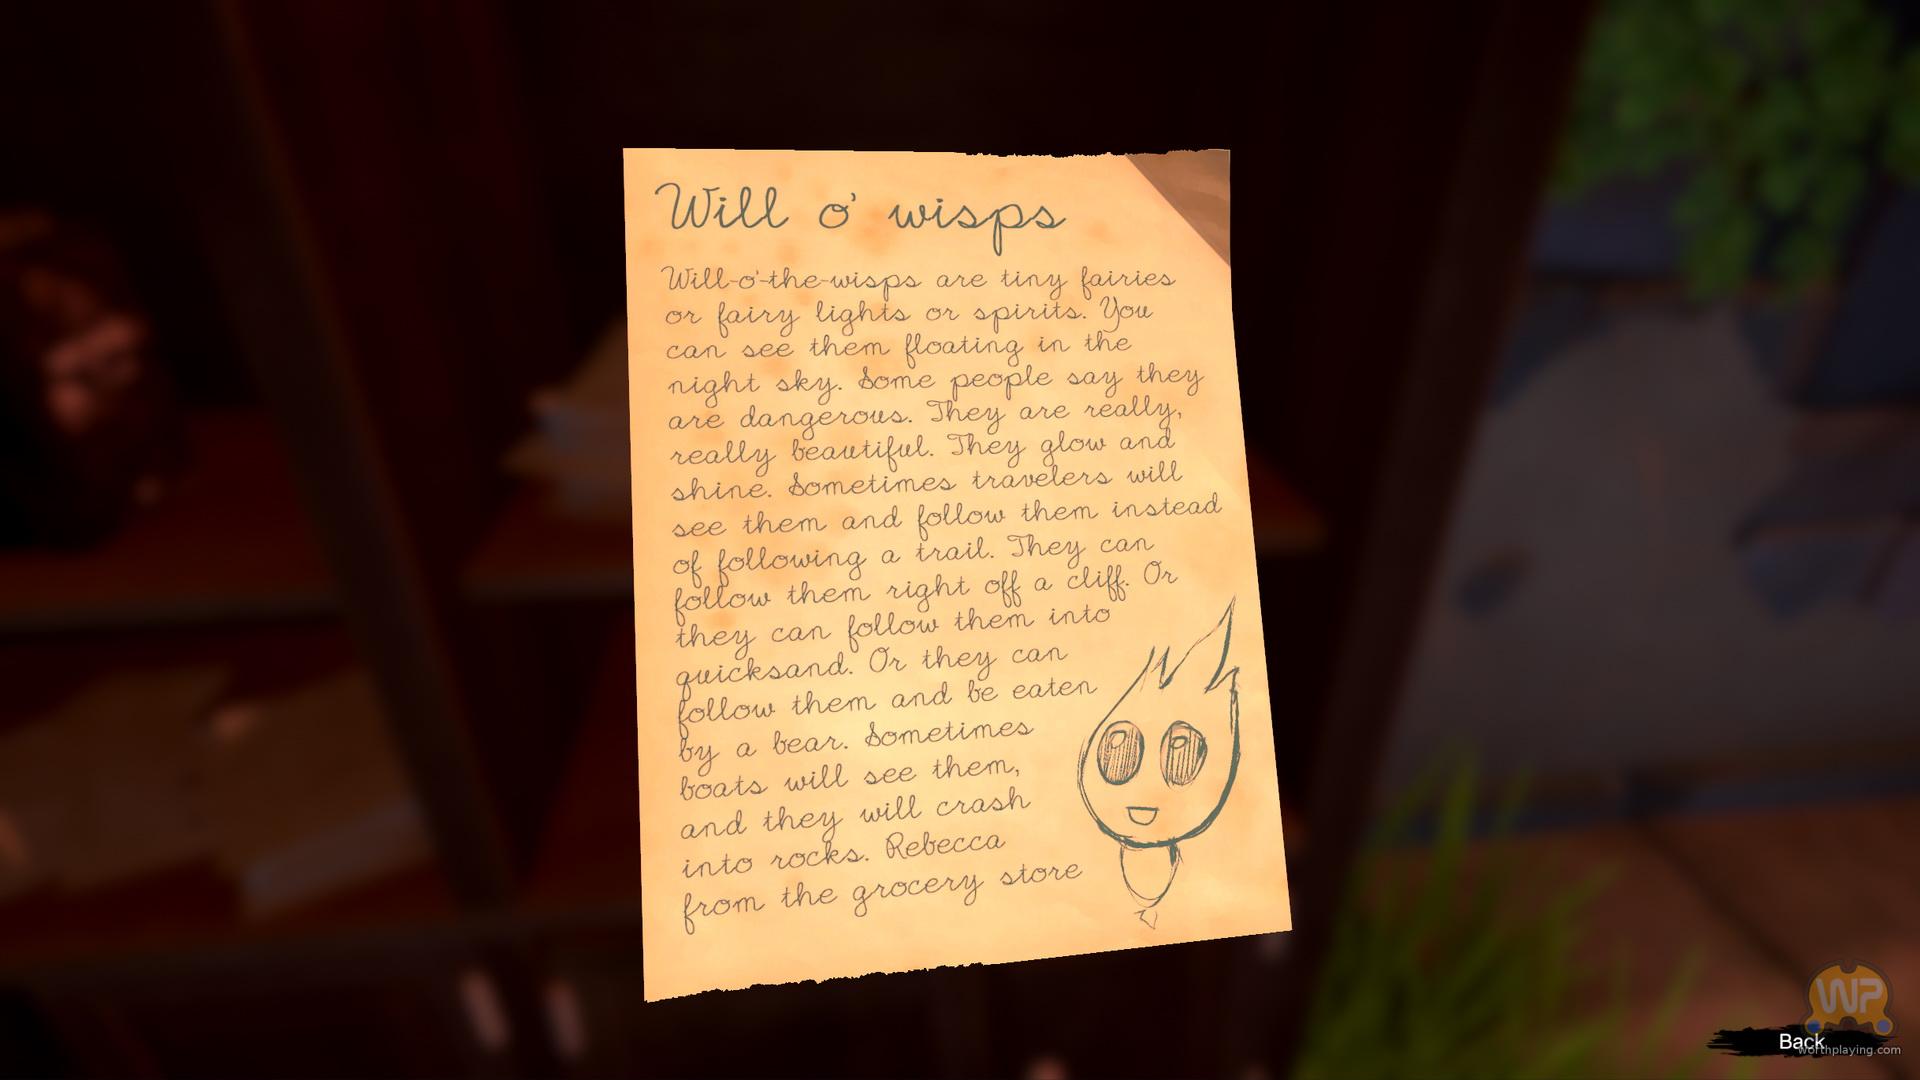 Will o' wisps
Will-o'-the-wisps are tiny fairies
or fairy lights or spirits. You
can see them floating in the
night sky. Some people say they
are dangerous. They are really,
really beautiful. They glow and
shine. Sometimes travelers will
see them and follow them instead
of following a trail. They can
follow them right off a cliff. Or
they can follow them into
quicksand. Or they can
follow them and be eaten
by a bear. Sometimes
boats will see them,
and they will crash
into rocks. Rebecca
from the grocery store
WP
Back
worthplaying.com